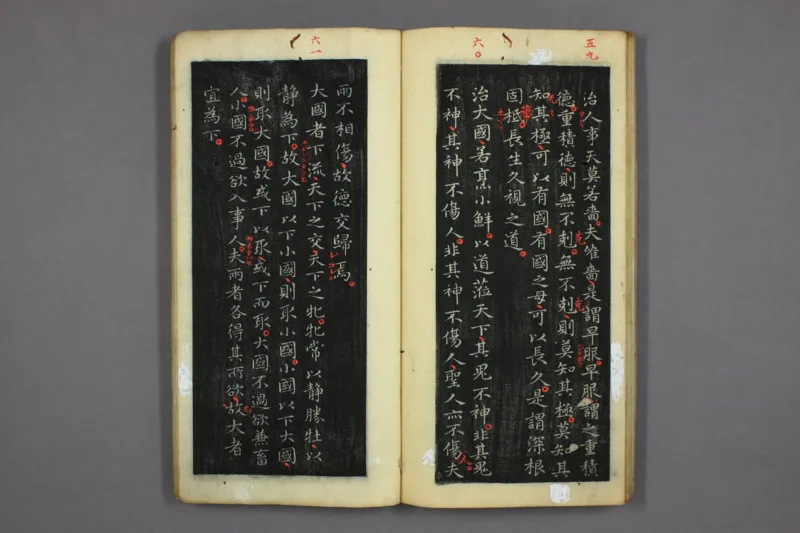 五九
治人事天莫若嗇夫惟嗇是謂早服早服謂之重積
德重積德則無不剋無不剋則莫知其極莫知其
知其極可以有國有國之母可以長久是謂深根
固柢長生久視之道
六〇
治大國若烹小鮮以道莅天下其鬼不神非其鬼
不神其神不傷人非其神不傷人聖人亦不傷夫
人
六一
兩不相傷故德交歸焉
大國者下流天下之交天下之牝牝常以靜勝牡以
静為下故大國以下小國則取小國小國以下大國
則取大國故或下以取或下而取大國不過欲兼畜
人小國不過欲入事人夫兩者各得其所欲故大者
宜為下